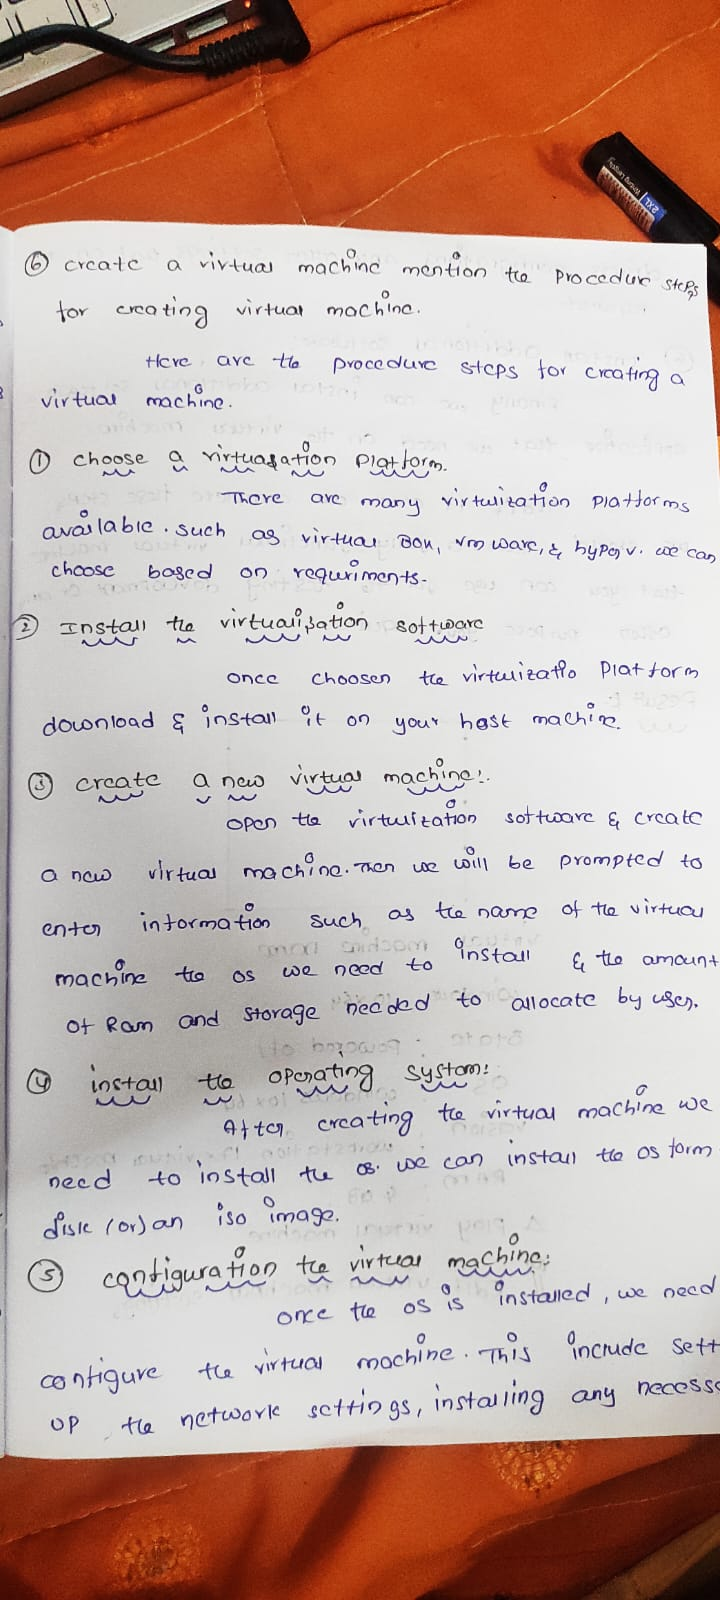 ⑥ create a virtual machine mention the procedure steps
for creating virtual machine.
Here are the procedure steps for creating a
virtual machine.
① choose a virtuasation platform.
There are many virtulization platforms
available. such as virtual Box, vm ware, & hyper v. we can
choose based on requriments.
② Install the virtualisation software
once choosen the virtulizatio platform
download & install it on your host machine.
③ create a new virtual machine:.
open the virtulization software & create
a new virtual machine. Then we will be prompted to
enter information such as the name of the virtual
machine the os we need to install & the amount
of Ram and storage needed to allocate by user.
④ install the operating system:
After creating the virtual machine we
need to install the os. we can install the os form
disk (or) an iso image.
⑤ configuration the virtual machine:
once the os is installed, we need
configure the virtual machine. This include sett
up the network settings, installing any necess
2XL